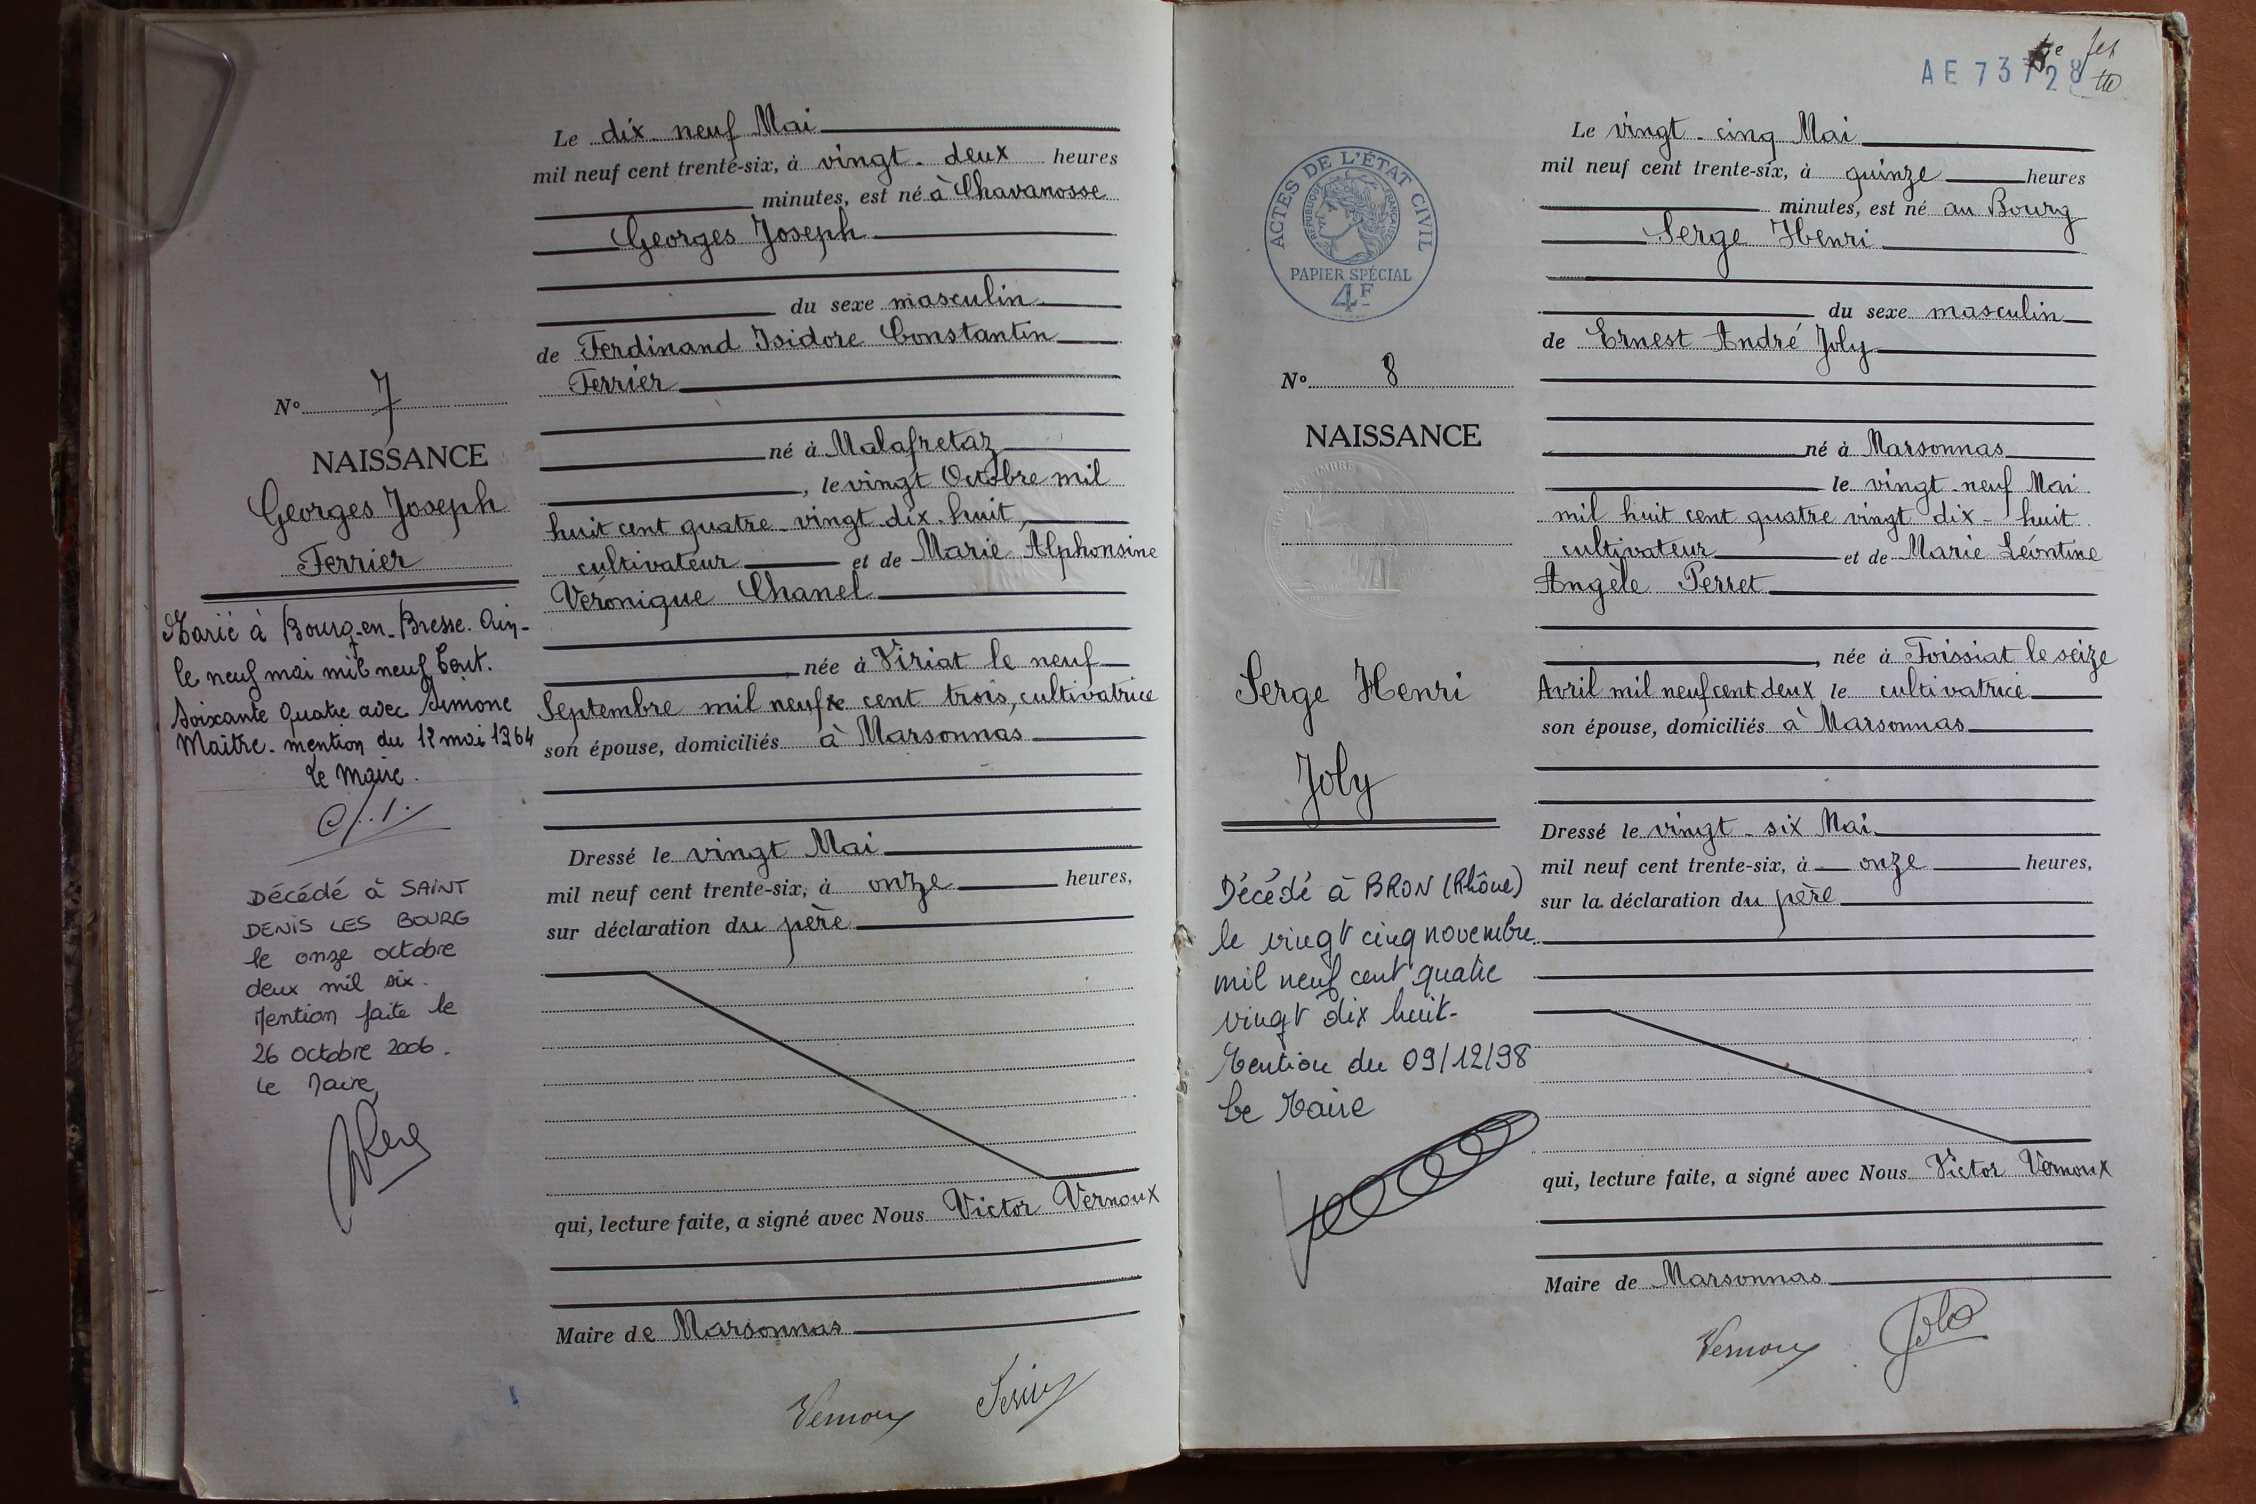 Le dix-neuf Mai
mil neuf cent trente-six, à vingt-deux heures
minutes, est né à Chavanosse
Georges Joseph
du sexe masculin
de Ferdinand Isidore Constantin
Ferrier
né à Malafretaz
, le vingt Octobre mil
huit cent quatre-vingt-dix-huit,
cultivateur et de Marie Alphonsine
Véronique Chanel
, née à Viriat le neuf
Septembre mil neuf cent trois, cultivatrice
son épouse, domiciliés à Marsonnas
Dressé le vingt Mai
mil neuf cent trente-six, à onze heures,
sur déclaration du père
qui, lecture faite, a signé avec Nous Victor Vernoux
Maire de Marsonnas
Vernoux
N° 7
NAISSANCE
Georges Joseph
Ferrier
Marié à Bourg-en-Bresse. Ain-
le neuf mai mil neuf Cent.
Soixante quatre avec Simone
Maître. mention du 12 mai 1964
Le Maire.
Décédé à SAINT
DENIS LES BOURG
le onze octobre
deux mil six.
Mention faite le
26 octobre 2006.
Le Maire
AE 73728
ACTES DE L'ÉTAT CIVIL
RÉPUBLIQUE FRANÇAISE
PAPIER SPÉCIAL
4F
N° 8
NAISSANCE
Serge Henri
Joly
Décédé à BRON (Rhône)
le vingt cinq novembre
mil neuf cent quatre
vingt dix huit-
Mention du 09/12/98
Le Maire
Le vingt-cinq Mai
mil neuf cent trente-six, à quinze heures
minutes, est né au Bourg
Serge Henri
du sexe masculin
de Ernest André Joly
né à Marsonnas
le vingt-neuf Mai
mil huit cent quatre vingt dix-huit
cultivateur et de Marie Léontine
Angèle Perret
, née à Foissiat le seize
Avril mil neuf cent deux le cultivatrice
son épouse, domiciliés à Marsonnas
Dressé le vingt-six Mai
mil neuf cent trente-six, à onze heures,
sur la déclaration du père
qui, lecture faite, a signé avec Nous Victor Vernoux
Maire de Marsonnas
Vernoux Joly